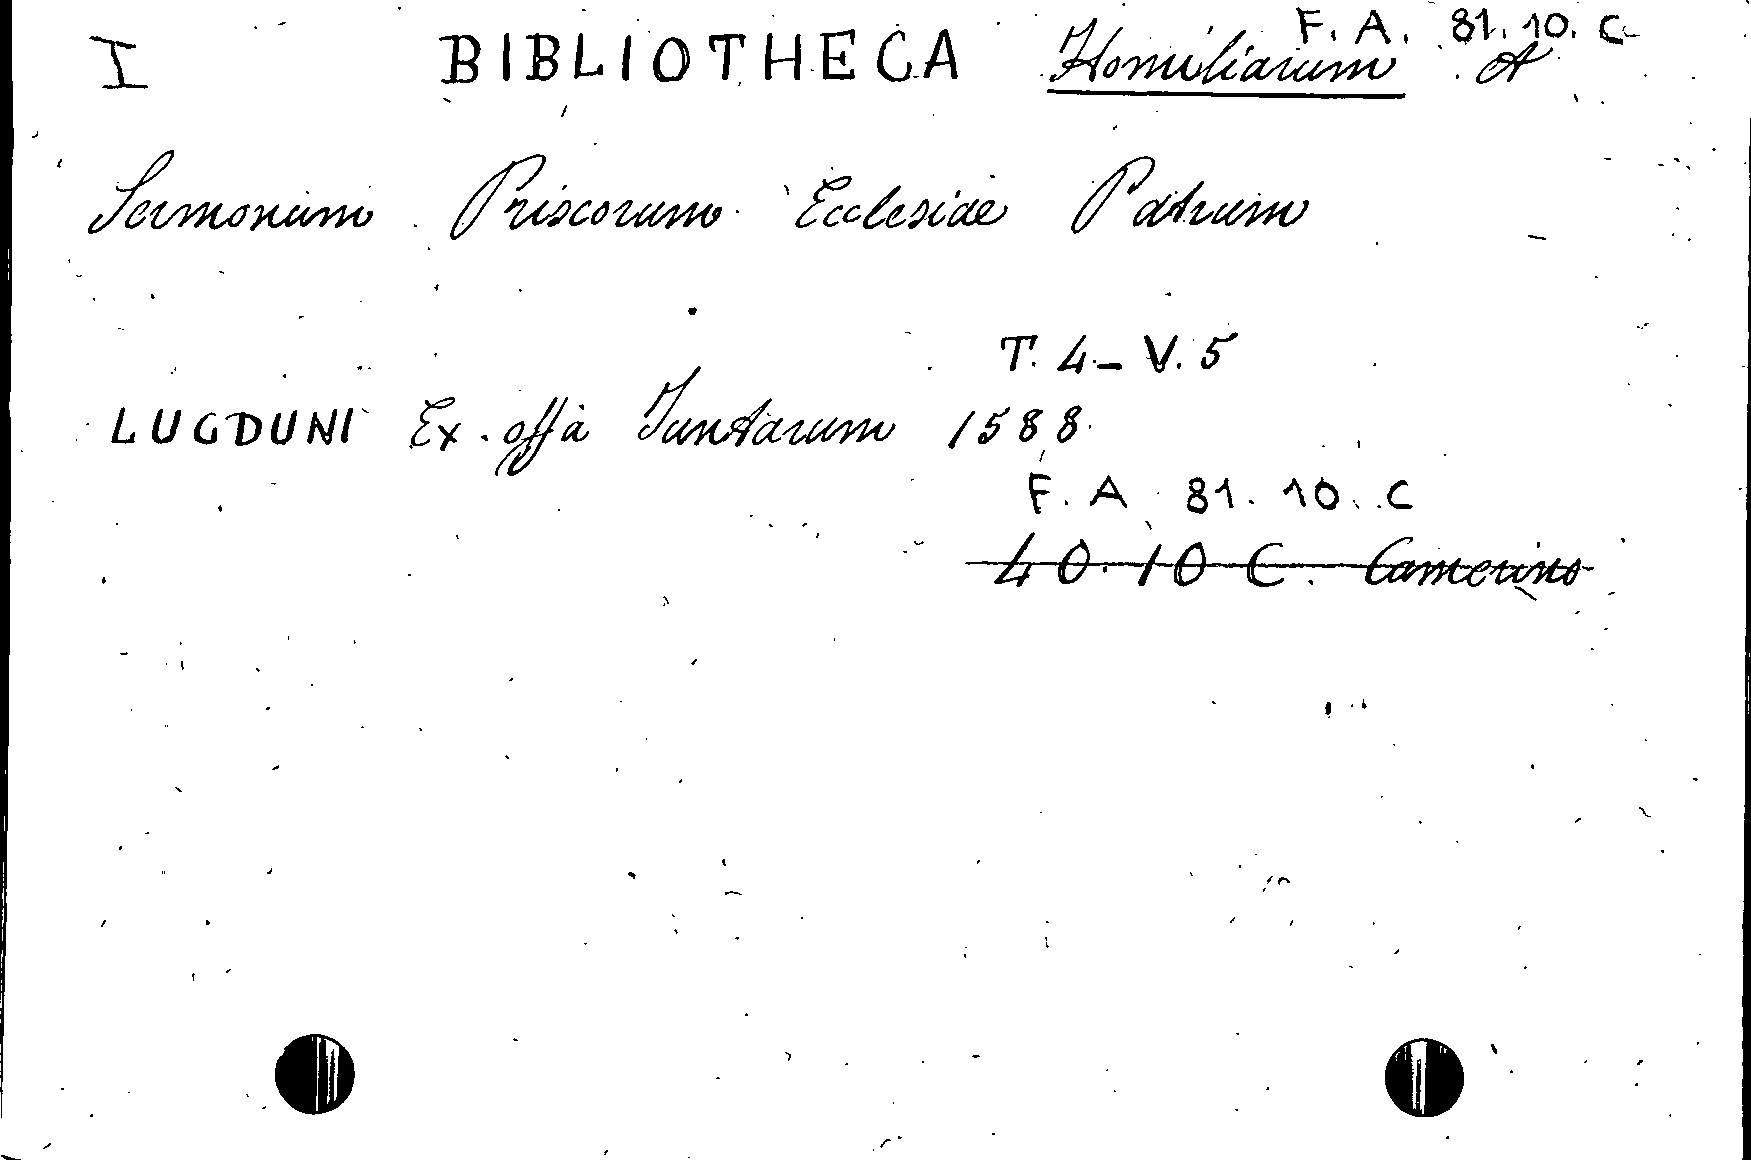 F. A. 81. 10. C
I BIBLIOTHECA Homiliarum A
Sermonum Priscorum Ecclesiae Patrum
T. 4 - V. 5
LUGDUNI Ex. offa Juntarum 1588
F. A 81. 10. C
40. 10 C. Camerino